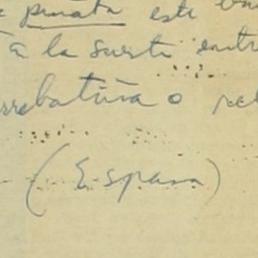 piñata este
a la suerte entre
arrebatiña o
(España)